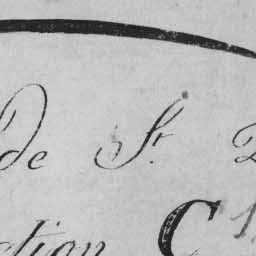 de St.
ction C